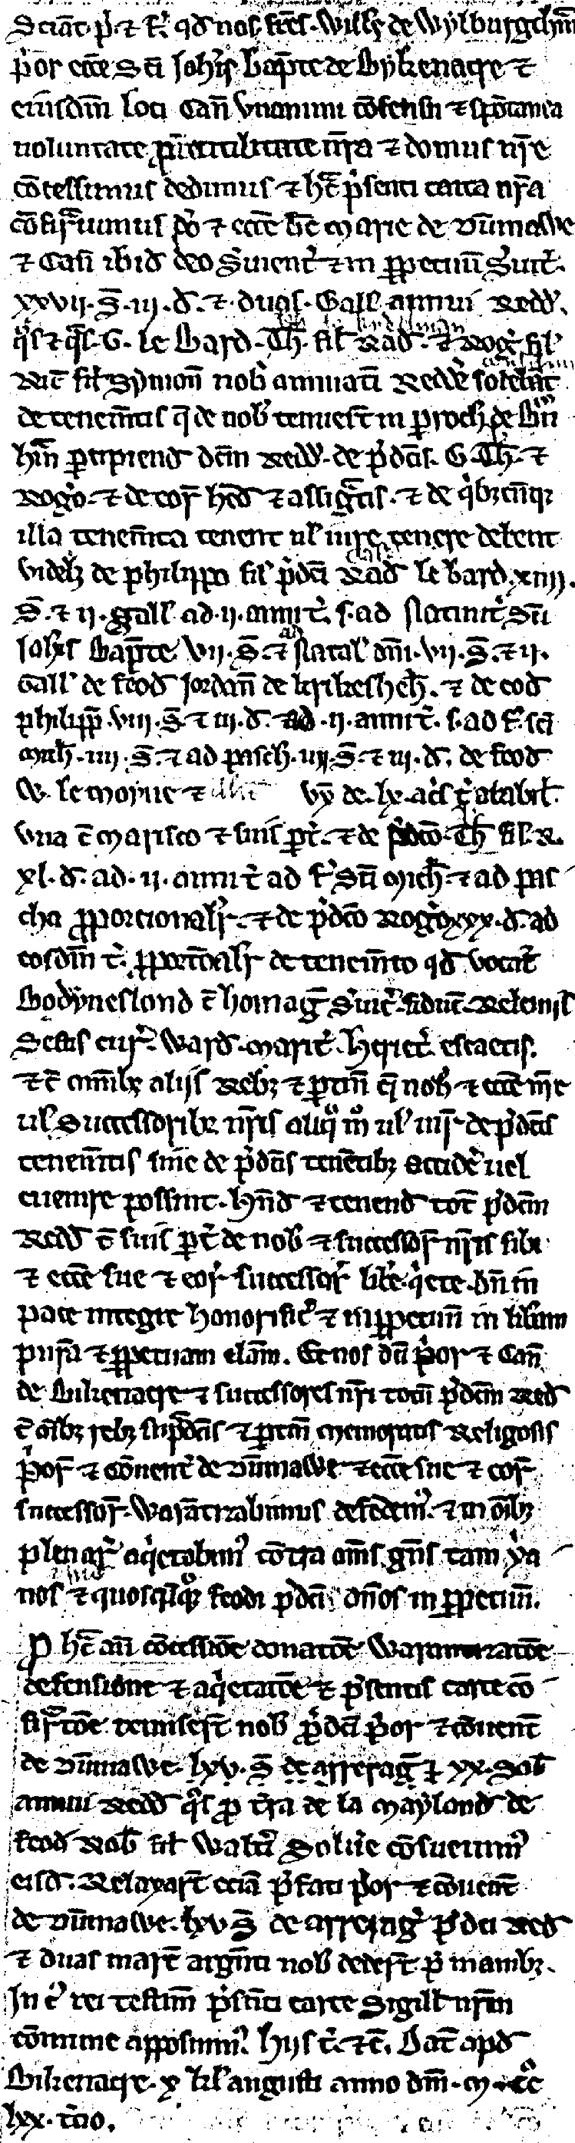 Sciāt p̄ & f̄. qd nos frēs. Willꝫ de Wylburgehm̄
p̓or ecc̄e Sc̄i Joh̄is bap̄te de Bykenacre &
eiusdm̄ loci Can̄ vnanimi cōsensu & spōtanea
uoluntate p̄ utilitate nr̄a & domus nr̄e
cōcessimus dedimus & hac p̓senti carta nr̄a
cōfirmauimus p̓o & ecc̄e b̄e marie de Dūmawe
& Can̄ ibid deo s̓uient̄ & in p̱petuū s̓uit̄.
xxvij. S̄. iij. d. & duas. Gall annui Redd.
q̓s & q̄s. G. le Bard. Th̄. fil Rad. & Rog̓. fil
Ric̄ fil Symon̄ nob̓ annuati Redde solebāt
de tenem̄tis q̄ de nob̓ tenuer̄t in paroch de
p̱cipiend dc̄m Redd. de p̓dc̄is. G. Th̄. &
Rog̓o. & de eor̄ hēd & assignatis. & de q̓bꝫcūqꝫ
illa tenem̄ta tenent ul̓ iure tenere debent
videlꝫ de philippo fil p̓dc̄i Rad le bard. xiiij.
S̄. & ij. gall ad. ij. ann̄i t̄. s. ad Natiuit̄ Sc̄i
Joh̄is Bap̄te vij. S̄. & ad Natal dn̄i. vij. S̄. & ij.
Gall de feod Jordan̄ de & de eod
philipp̄ viij. S̄ & iij. d. ad. ij. ann̄i t̄. s. ad f̄. sc̄i
mich. iiij. S̄. & ad pasch. iiij. S̄. & iij. d. de feod
W. le moyne & de. lx. ac̓s t̄re arabil.
vna c̄ marisco & suis p̱t̄. & de p̓dc̄o. Th̄ fil. R.
xl. d. ad. ij. ann̄i t̄ ad f̄ Sc̄i mich̄. & ad pas
cha p̱porcionalit̓. & de p̓dc̄o Rog̓o xxx. d. ad
eosdm̄ t̄. p̱porcōnalit̓ de tenem̄to qd vocat̓
Bodyneslond c̄ homag̓ s̓uic̓. fiduc̄. Releuiis
Sectis cur̄. Ward. marit̓. heriet̓. escaetis.
& c̄ om̄ibꝫ alijs Rebꝫ & p̱tin̄ q̄ nob̓ & ecc̄e nr̄e
ul̓ Successoribꝫ nr̄is aliq̓ m̊ ul̓ iur̄ de p̓dc̄is
tenem̄tis siue de p̓dc̄is tenētibꝫ accid̓e uel
euenire possint. Hn̄d & tenend tot̄ p̓dc̄m
Redd c̄ suis p̱t̄ de nob̓ & successor̄ nr̄is sibi
& ecc̄e sue & eor̄ successor̄ libe̓. q̓ete. bn̄ in
pace integre honorific̓ & in p̱petuū in libam
purā & p̱petuam elam̄. Et nos dc̄i p̓or & Can̄
de Bikenacre & successores nr̄i totū p̓dc̄m Red
c̄ om̄ibꝫ rebꝫ sup̓dc̄is & p̱tin̄ memoratis Religosis
p̓or̄ & cōuent̓ de Dūmawe & ecc̄e sue & eor̄
successor̄. Warātizabimus defēdem̓. & in om̄ibꝫ
plenar̓ aq̓etabim̓ cōtra om̄s gn̄s tam p̓a
nos & quoscūqꝫ feodi p̓dc̄i dn̄os in p̱petuū.
P hac aū cōcessiōe donatōe Warantizatōe
defensione & aq̓etatōe & p̓sentis carte cō
firmatōe remiser̄t nob̓ p̓dc̄i p̓or & cōuent̄
de Dūmawe. lxv. S̄ de arrerag̓ & xx. Sol
annui Redd q̓s p̱ t̄ra de la Maylond de
feod Rob fil Walt̓i Soluē cōsueuim̓
eisd. Relaxar̄t eciā p̓fati p̓or & cōuent̄
de Dūmawe. lxv S̄ de arrerag̓ p̓dc̄i Red
& duas marc̄ argn̄ti nob̓ deder̄t p̱ manibꝫ.
In c̓ rei testim̄ p̓sn̄ti carte Sigill nr̄m
cōmune apposuim̓. Hijs t̄. &c̄. Dat̄ apd
Bikenacre. x kl augusti anno dn̄i. m. cc̊
lxx. t̓cio.